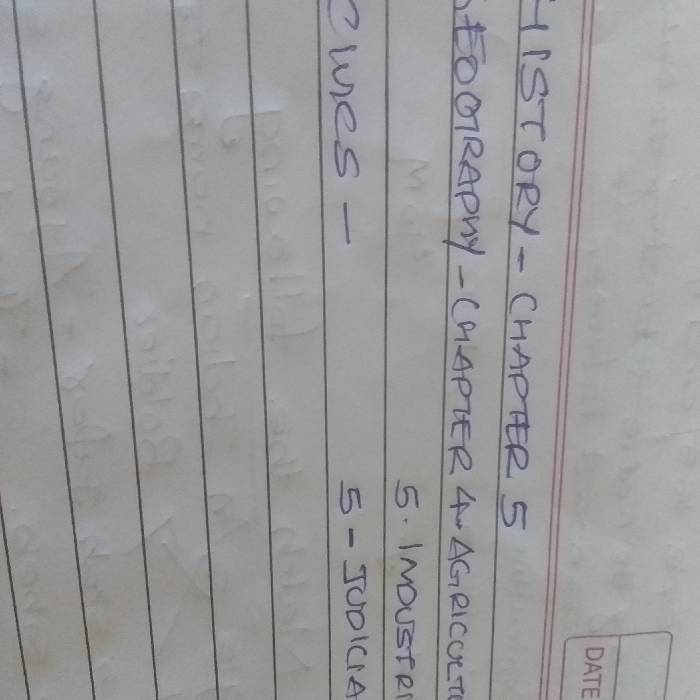 DATE
HISTORY - CHAPTER 5
GEOGRAPHY - CHAPTER 4 - AGRICULTU
5. INDUSTRI
CIVICS - 5 - JUDICIA